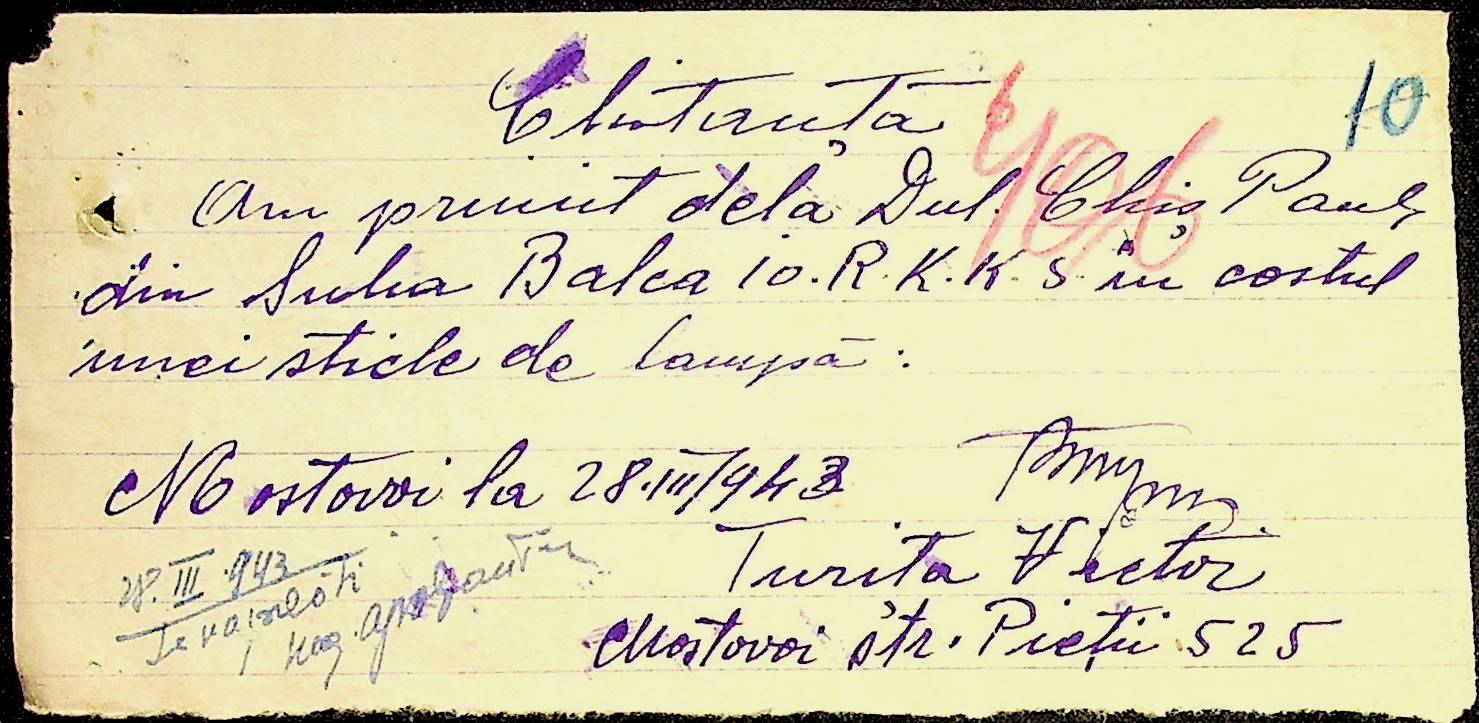 Chitanță
10
406
Am primit dela Dul. Chiș Paul,
din Suha Balca 10. R. K. K. S. în costul
unei sticle de lampă.
Mostovoi la 28.III/943
Turita Victor
Mostovoi str. Pieții 525
28.III.943